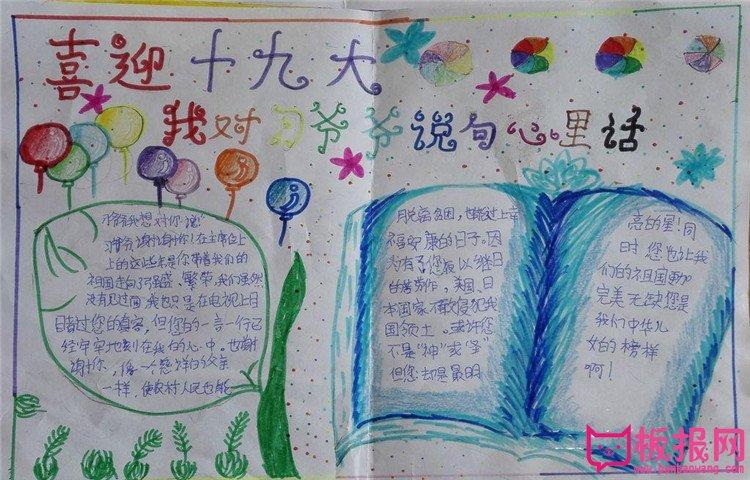 喜迎十九大
我对习爷爷说句心里话
爷爷我想对你说:“
习爷爷谢谢你!在主席位上
上的这些年是你带着我们的
祖国走向了强盛、繁荣,我们虽然
没有见过面,我也只是在电视上目
目睹过您的真容,但您的一言一行已
经牢牢地刻在我的心中,也谢
谢你,像一个慈祥的父亲
一样,使农村人民也能
脱离贫困,也能过上幸
小康的日子。因
为有了您夜以继日
的操劳,美国、日
本国家不敢侵犯我
国领土。或许您
不是“神”或“圣”
但您却是最明
亮的星!同
时您也让我
们的祖国更加
完美无缺您是
我们中华儿
女的榜样
啊!
板报网
www.banbaowang.com